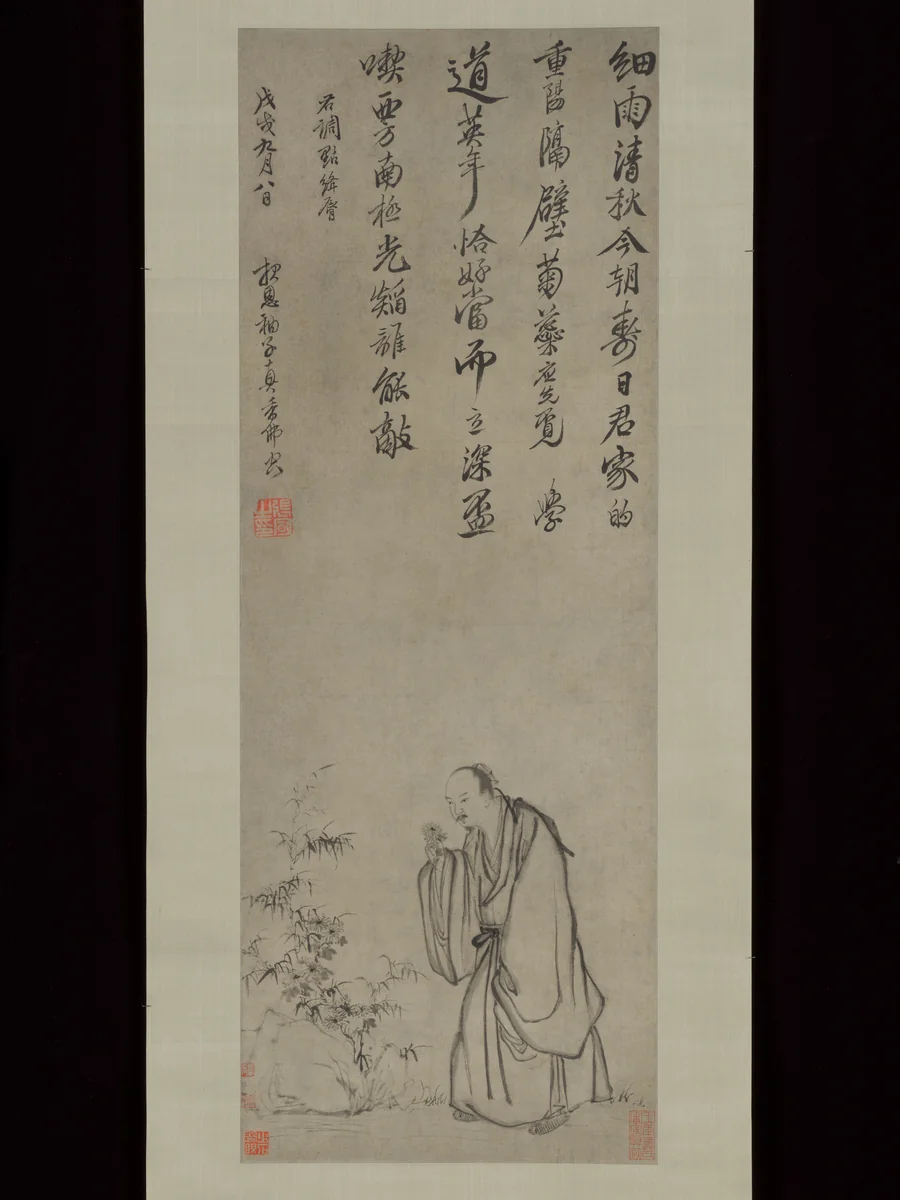 細雨清秋今朝壽日君家的
重陽隔壁菊蘂應先覓 學
道英年恰好當而立深盃
喫西方南極光熖誰能敵
右調點絳脣
戊戌九月八日 報恩秞子真香佛空